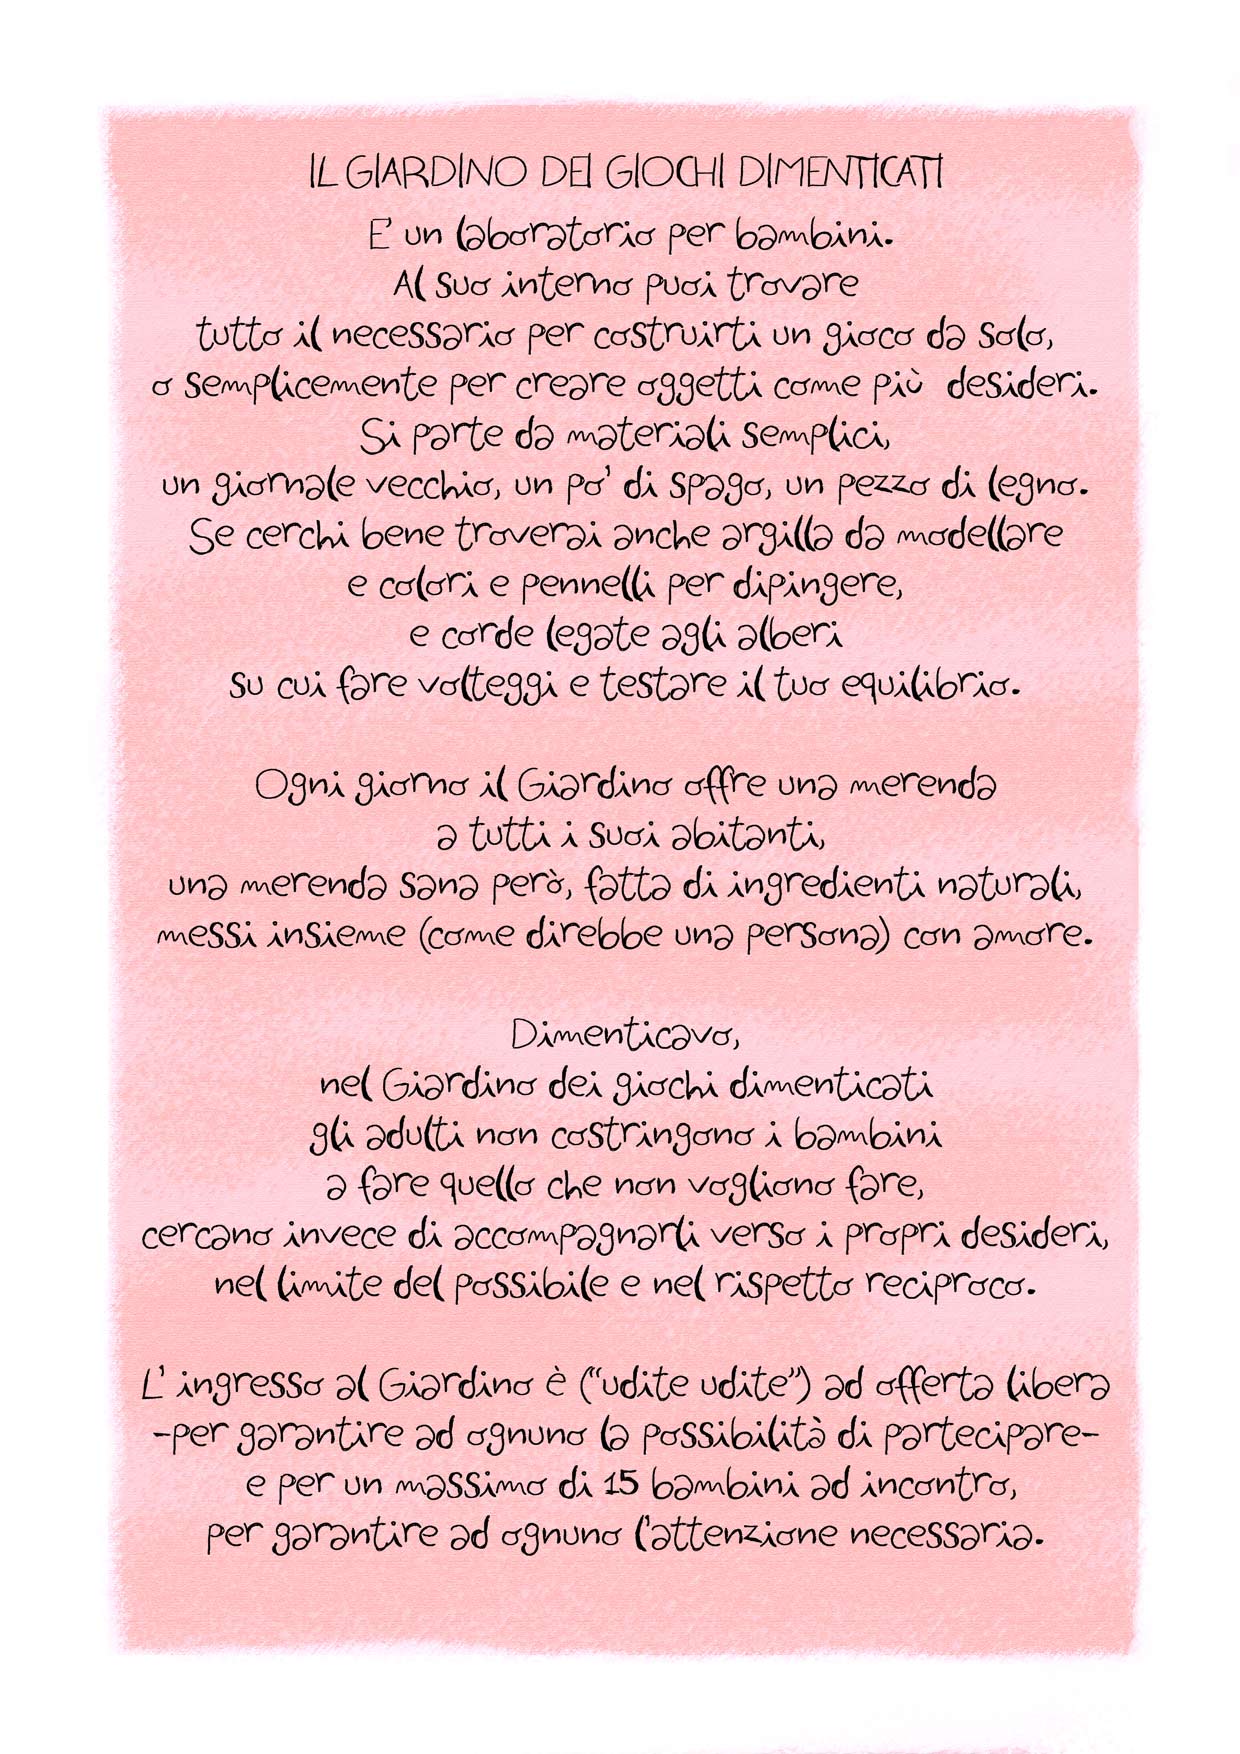 IL GIARDINO DEI GIOCHI DIMENTICATI
E' un laboratorio per bambini.
Al suo interno puoi trovare
tutto il necessario per costruirti un gioco da solo,
o semplicemente per creare oggetti come più desideri.
Si parte da materiali semplici,
un giornale vecchio, un po' di spago, un pezzo di legno.
Se cerchi bene troverai anche argilla da modellare
e colori e pennelli per dipingere,
e corde legate agli alberi
su cui fare volteggi e testare il tuo equilibrio.
Ogni giorno il Giardino offre una merenda
a tutti i suoi abitanti,
una merenda sana però, fatta di ingredienti naturali,
messi insieme (come direbbe una persona) con amore.
Dimenticavo,
nel Giardino dei giochi dimenticati
gli adulti non costringono i bambini
a fare quello che non vogliono fare,
cercano invece di accompagnarli verso i propri desideri,
nel limite del possibile e nel rispetto reciproco.
L' ingresso al Giardino è ("udite udite") ad offerta libera
-per garantire ad ognuno la possibilità di partecipare-
e per un massimo di 15 bambini ad incontro,
per garantire ad ognuno l'attenzione necessaria.